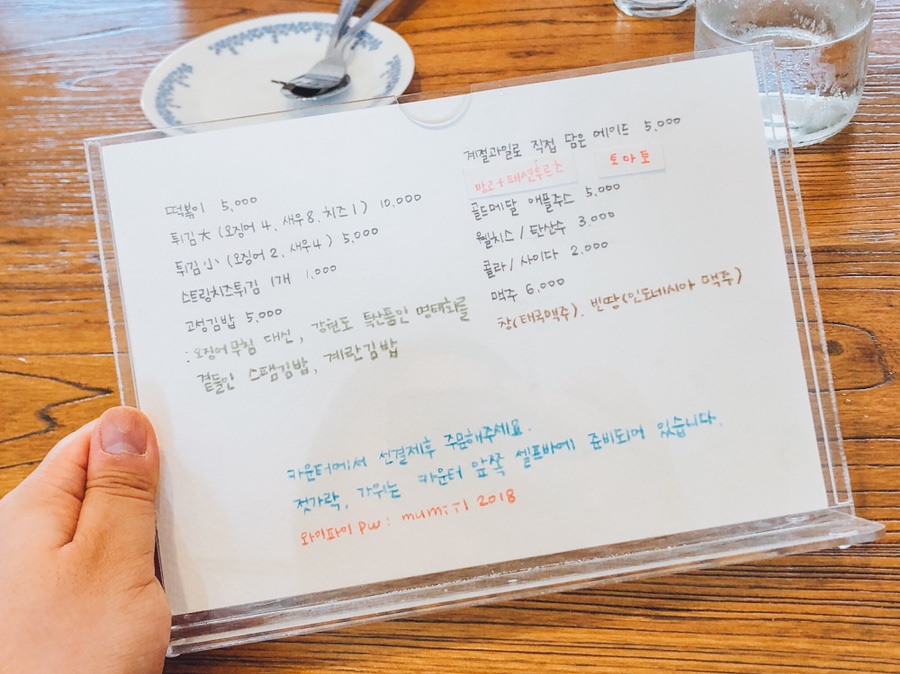 떡볶이 5,000
튀김大 (오징어 4, 새우 8, 치즈 1) 10,000
튀김小 (오징어 2, 새우 4) 5,000
스트링치즈튀김 1개 1,000
고성김밥 5,000
: 오징어무침 대신, 강원도 특산품인 명태회를
곁들인 스팸김밥, 계란김밥
계절과일로 직접 담은 에이드 5,000
망고+패션후르츠 토마토
골드메달 애플쥬스 5,000
웰치스 / 탄산수 3,000
콜라 / 사이다 2,000
맥주 6,000
창(태국맥주), 빈땅(인도네시아 맥주)
카운터에서 선결제후 주문해주세요.
젓가락, 가위는 카운터 앞쪽 셀프바에 준비되어 있습니다.
와이파이 pw :  2018